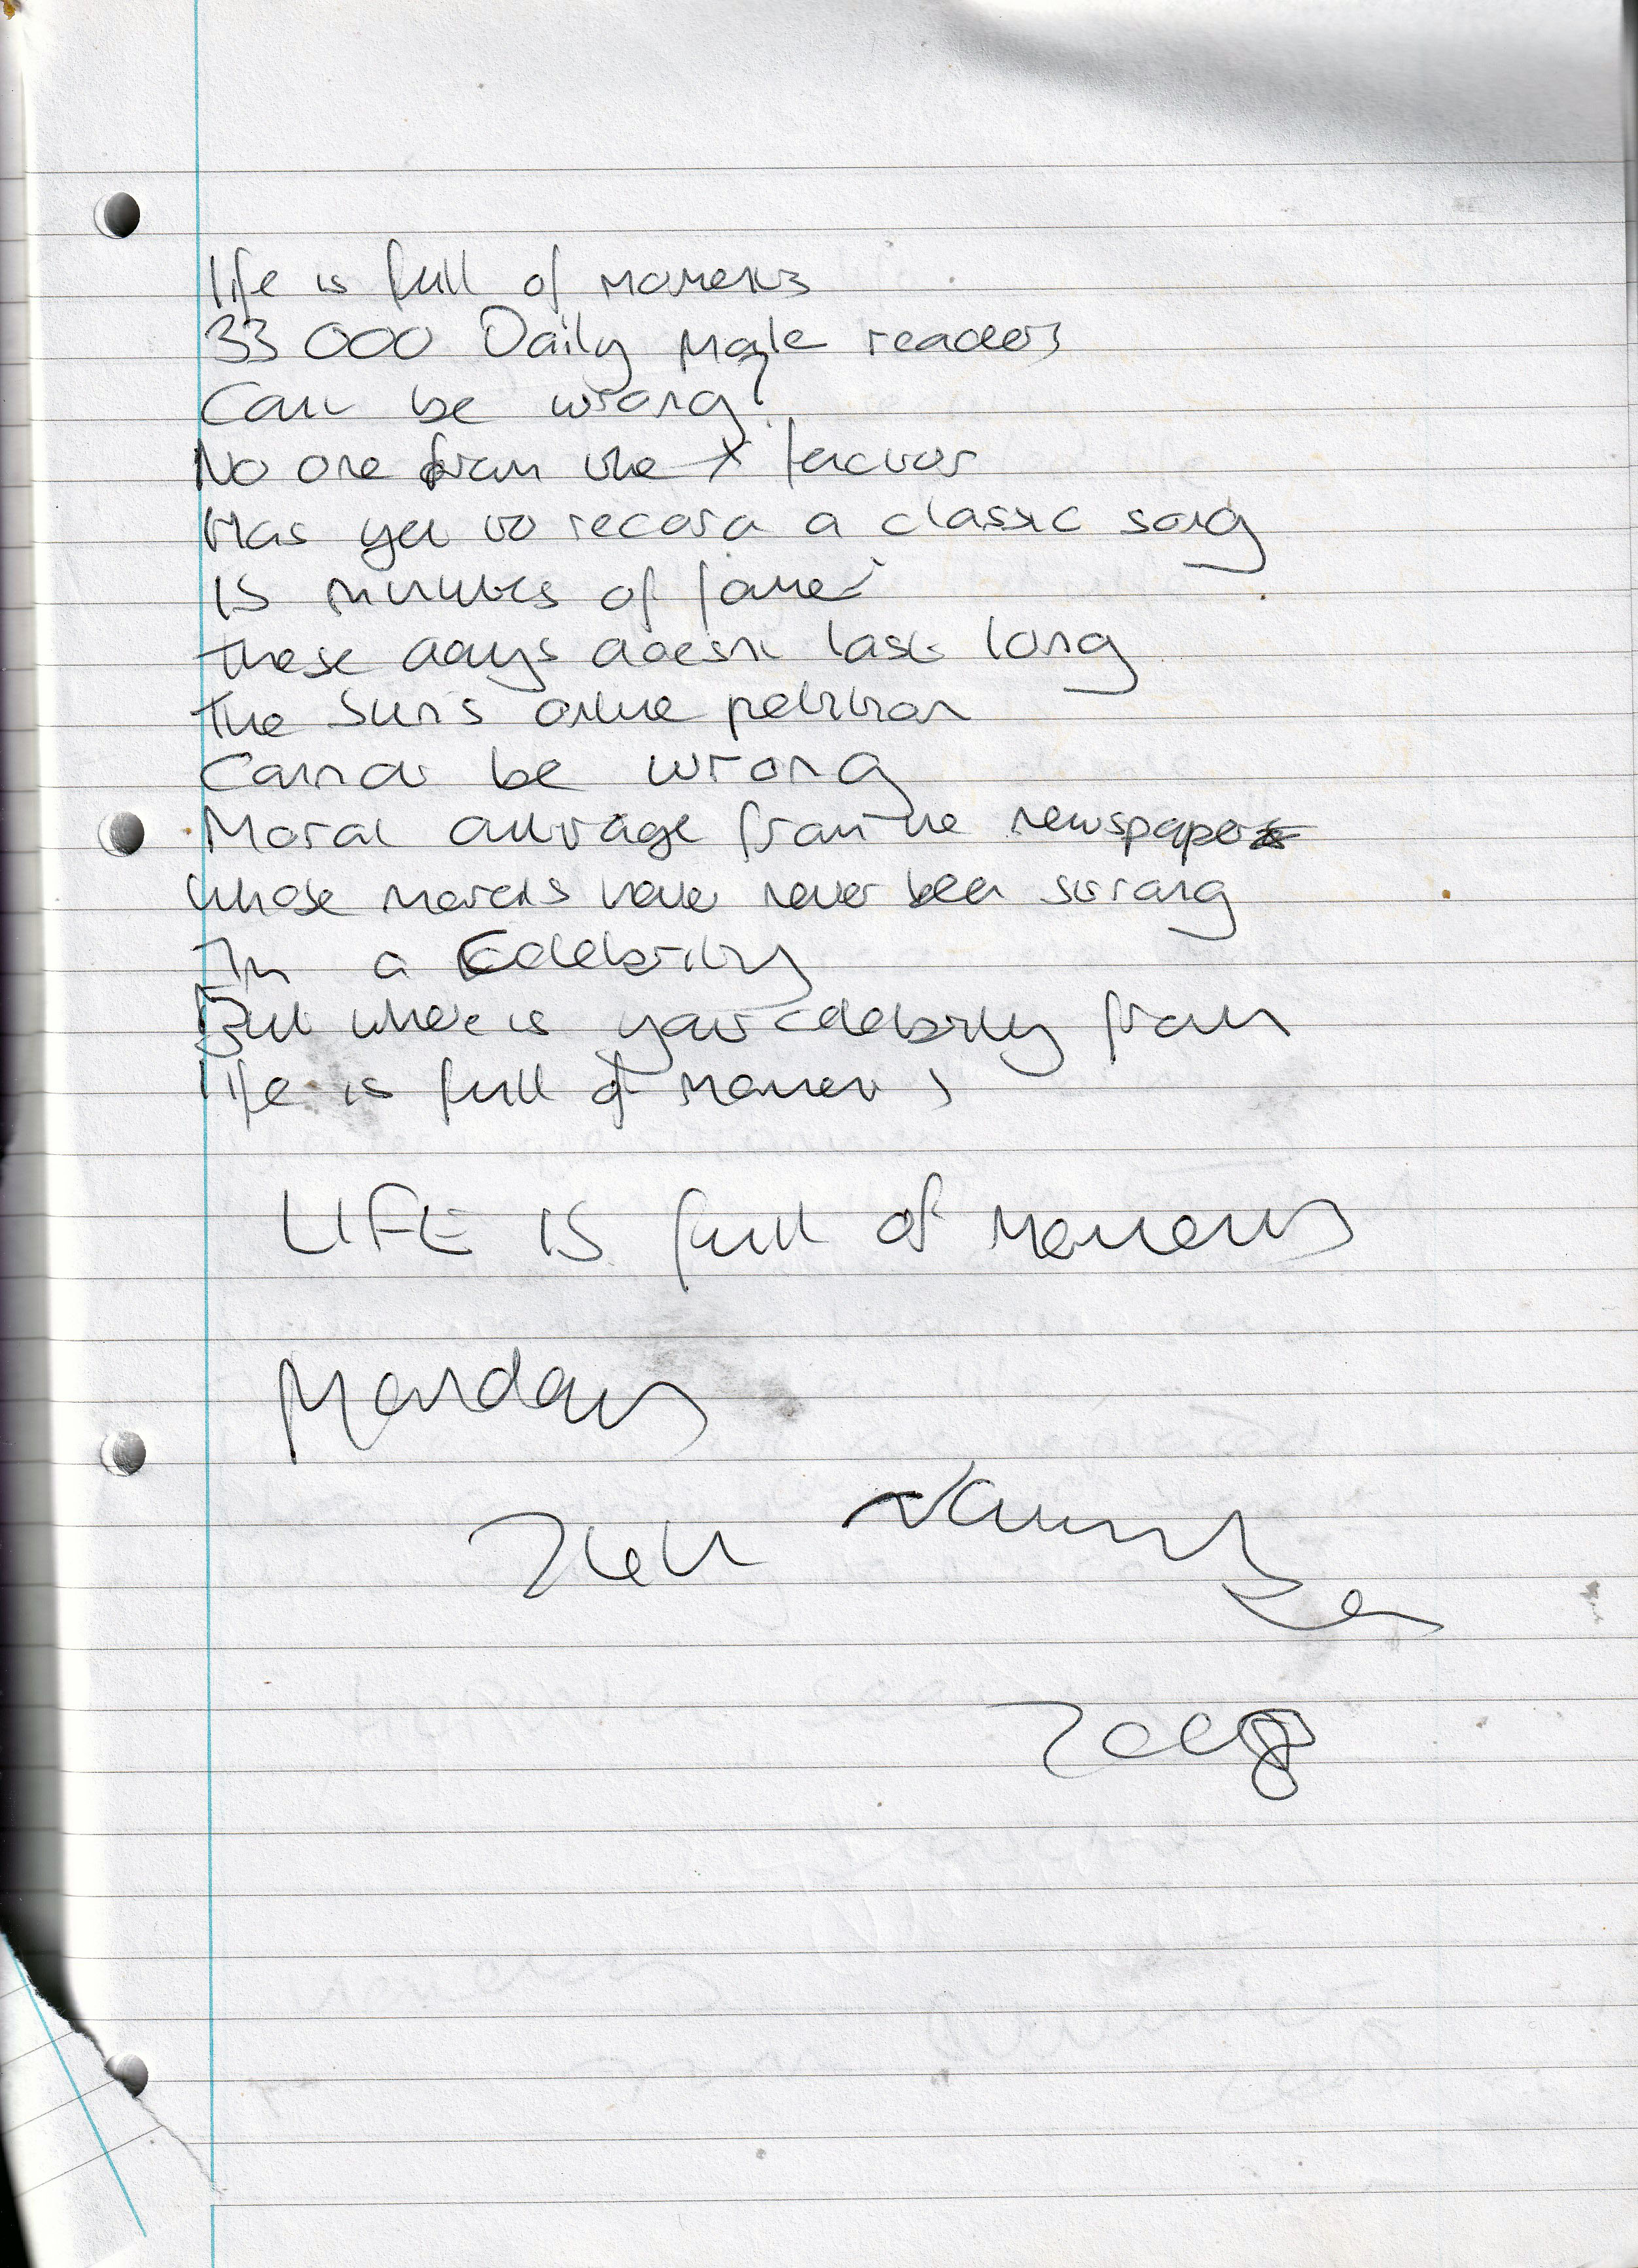 life is full of moments
33 000 Daily Male readers
Can be wrong?
No one from the X factor
Has yet to record a classic song
15 minutes of fame
These days doesnt last long
The Sun's online petition
Cannot be wrong
Moral outrage from the newspaper
whose morals have never been strong
Im a Celebrity
But where is your celebrity from
life is full of moments
LIFE IS full of Moments
Mondays
2008